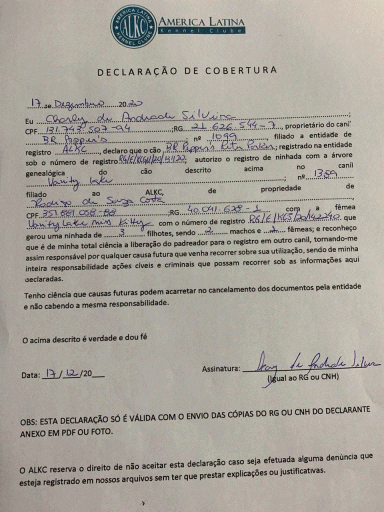 AMERICA LATINA
ALKC
KENNEL CLUBE
AMERICA LATINA
Kennel Clube
DECLARAÇÃO DE COBERTURA
17 de Dezembro 2020
Eu Charley de Andrade Silveira
CPF 131.743.507-94 ;RG 21 626 544-7, proprietário do canil
BR Poppers nº 1099, filiado a entidade de
registro ALKC, declaro que o cão BR Poppers registrado na entidade
sob o número de registro autorizo o registro de ninhada com a árvore
genealógica do cão descrito acima no canil
Vanity Lake nº 1359
filiado ao ALKC, de propriedade de
Rodrigo de Souza Costa
CPF 351 881 058-88 ;RG 40 041 628-1 com a fêmea
Vanity Lake com o número de registro que
gerou uma ninhada de 3 filhotes, sendo machos e fêmeas; e reconheço
que é de minha total ciência a liberação do padreador para o registro em outro canil, tornando-me
assim responsável por qualquer causa futura que venha recorrer sobre sua utilização, sendo de minha
inteira responsabilidade ações cíveis e criminais que possam recorrer sob as informações aqui
declaradas.
Tenho ciência que causas futuras podem acarretar no cancelamento dos documentos pela entidade
e não cabendo a mesma responsabilidade.
O acima descrito é verdade e dou fé
Data: 17/12/20 Assinatura:
(Igual ao RG ou CNH)
OBS: ESTA DECLARAÇÃO SÓ É VÁLIDA COM O ENVIO DAS CÓPIAS DO RG OU CNH DO DECLARANTE
ANEXO EM PDF OU FOTO.
O ALKC reserva o direito de não aceitar esta declaração caso seja efetuada alguma denúncia que
esteja registrado em nossos arquivos sem ter que prestar explicações ou justificativas.